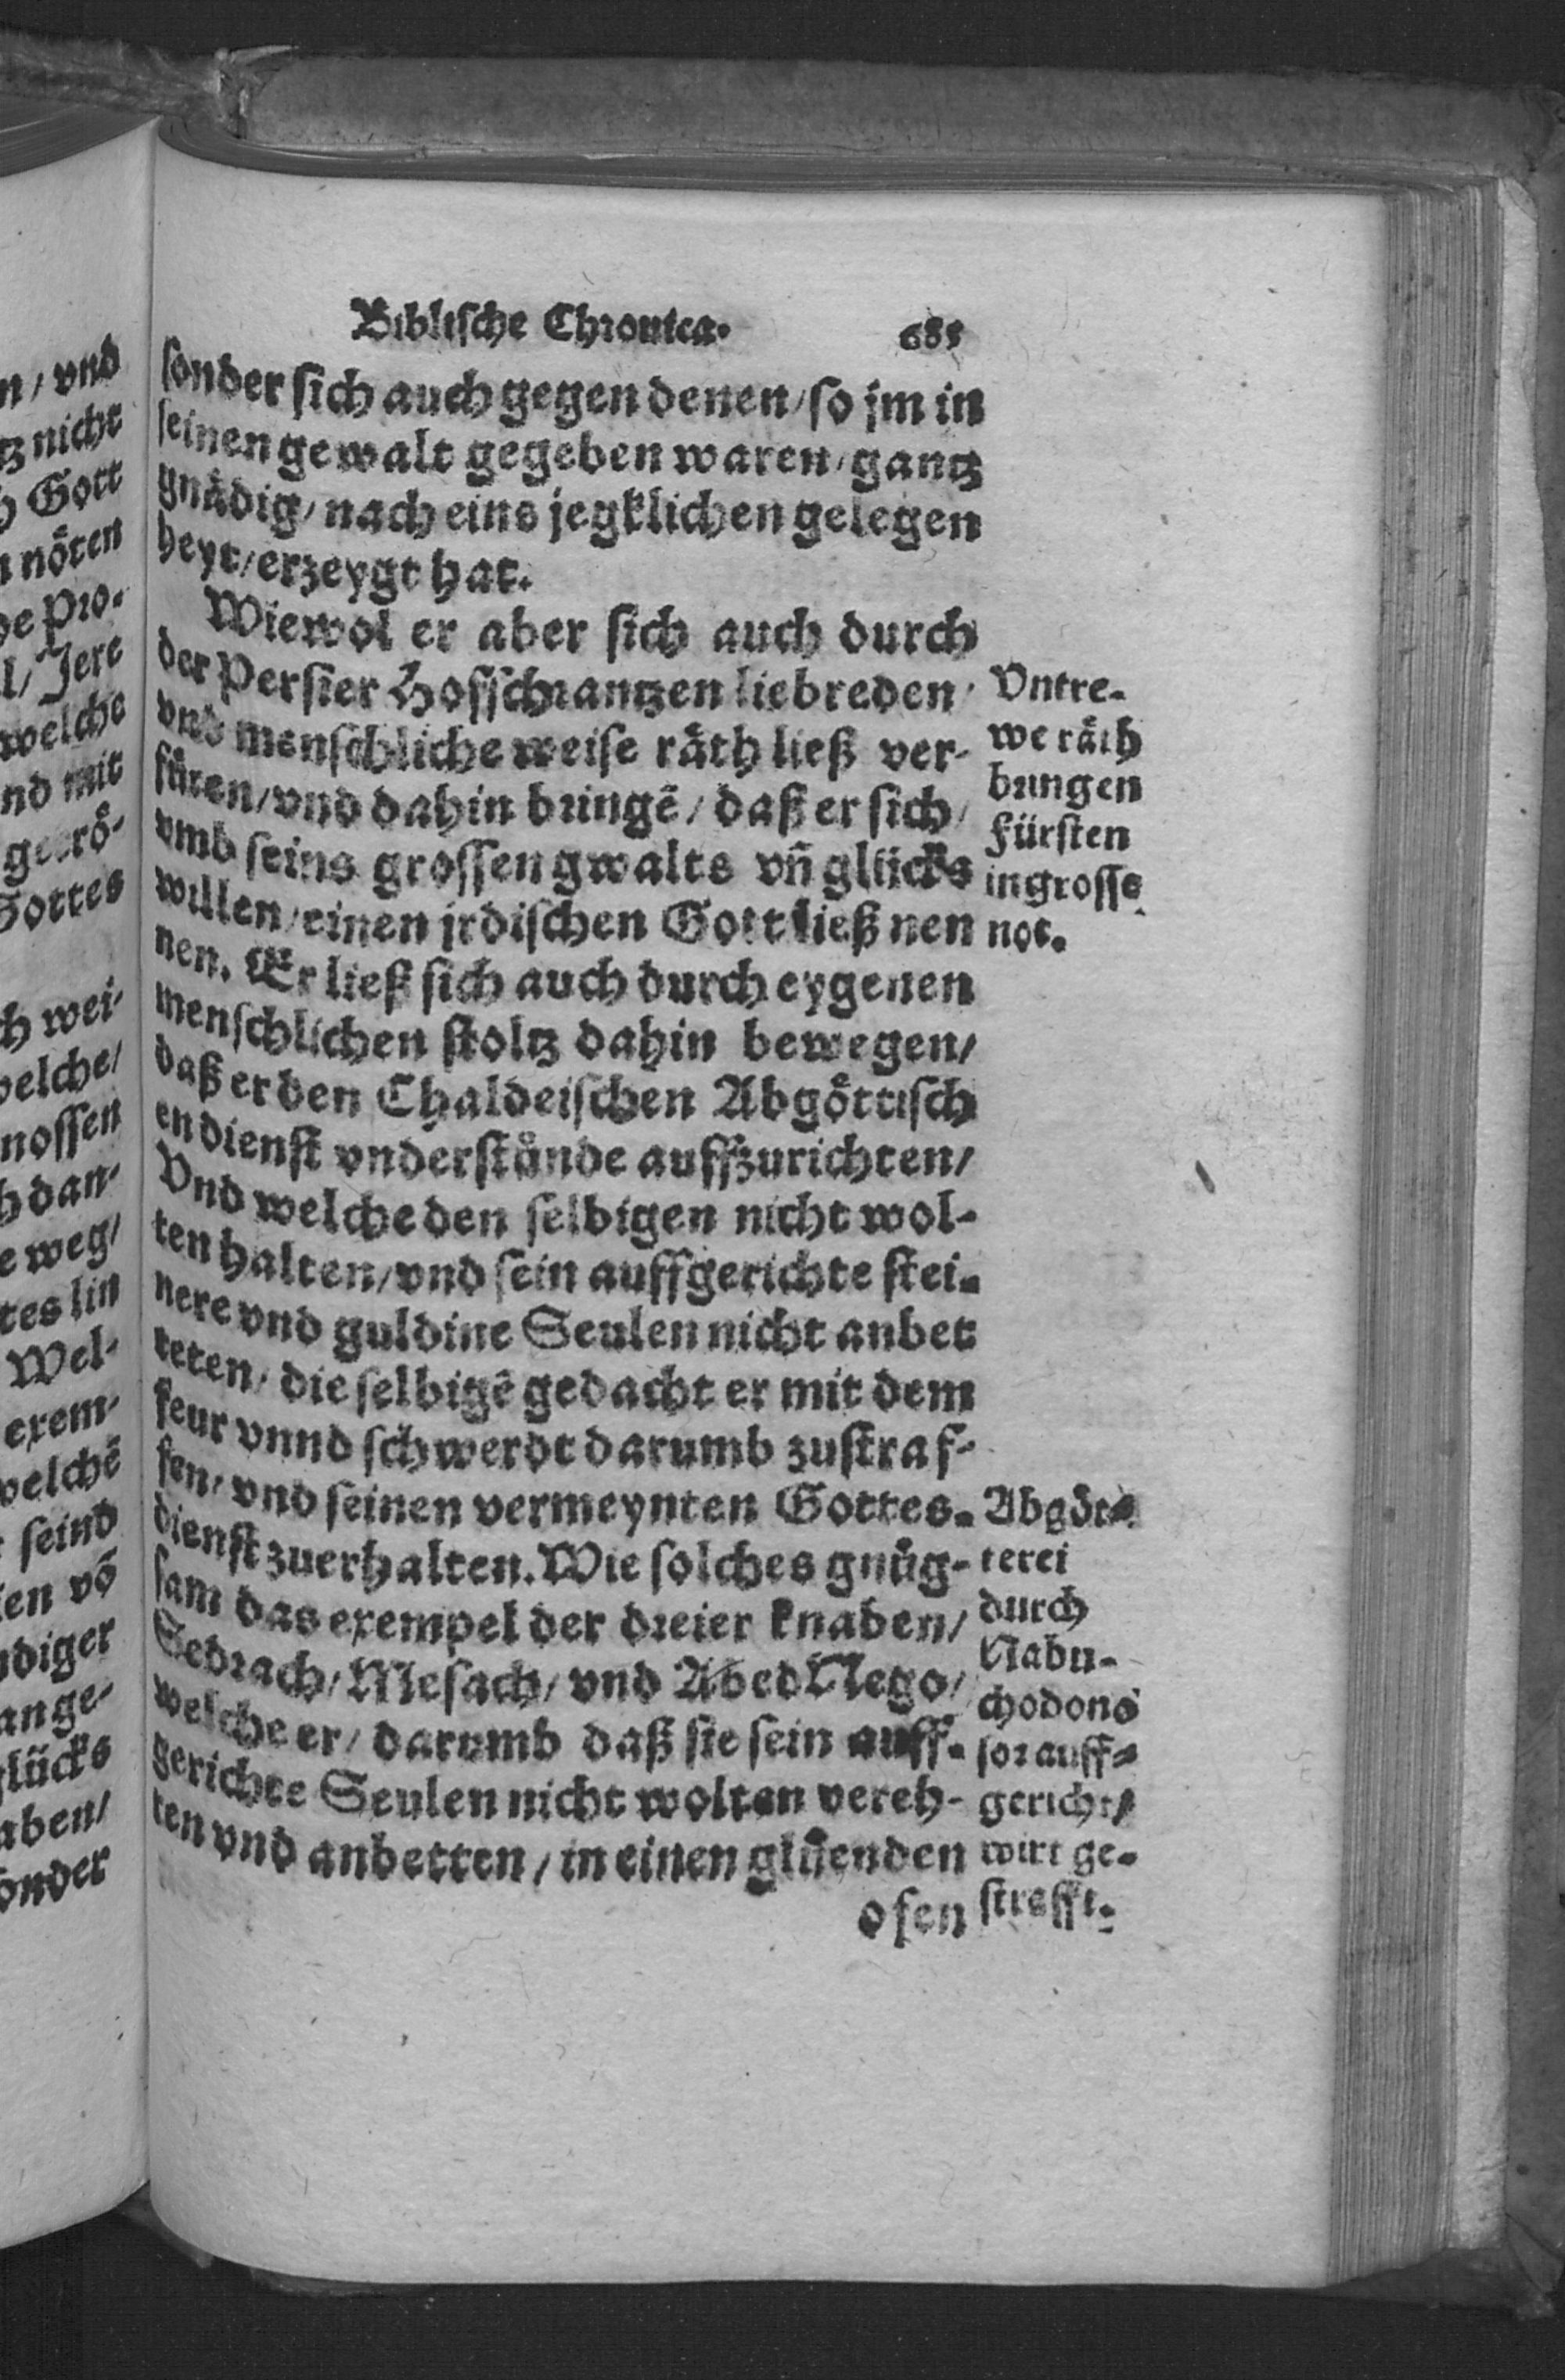 Biblische Chronica. 685
sonder sich auch gegen denen/ so jm in
seinen gewalt gegeben waren/ gantz
gnådig/ nach eins jegklichen gelegen
heyt/ erzeygt hat.
Wiewol er aber sich auch durch
der Persier Hofschrantzen liebreden
vnd menschliche weise råth ließ ver-
fůren/ vnd dahin bringẽ/ daß er sich/
vmb seins grossen gwalts vñ glücks
willen/ einen jrdischen Gott ließ nen
nen. Er ließ sich auch durch eygenen
menschlichen stoltz dahin bewegen/
daß er den Chaldeischen Abgöttisch
en dienst vnderstånde auffzurichten/
Vnd welche den selbigen nicht wol-
ten halten/ vnd sein auffgerichte stei-
nere vnd guldine Seulen nicht anbet
teten/ die selbigẽ gedacht er mit dem
feur vnnd schwerdt darumb zustraf-
fen/ vnd seinen vermeynten Gottes-
dienst zuerhalten. Wie solches gnůg-
sam das exempel der dreier knaben/
Sedrach/ Mesach/ vnd AbedNego/
welche er/ darumb daß sie sein auff-
gerichte Seulen nicht wolten vereh-
ren vnd anbetten/ in einen glůenden
ofen
Vntre-
we råth
bringen
Fürsten
in grosse
not.
Abgöt-
terei
durch
Nabu-
chodono
sor auff-
gericht/
wirt ge-
strafft.
n/ vnd
tz nicht
Gott
nöten
pro-
l/ Jere
welche
nd mit
Gottes
ch wei-
welche/
nossen
dan-
weg/
tes lin
Wel-
exem-
welchẽ
seind
en võ
diger
ange-
glücks
aben/
onder